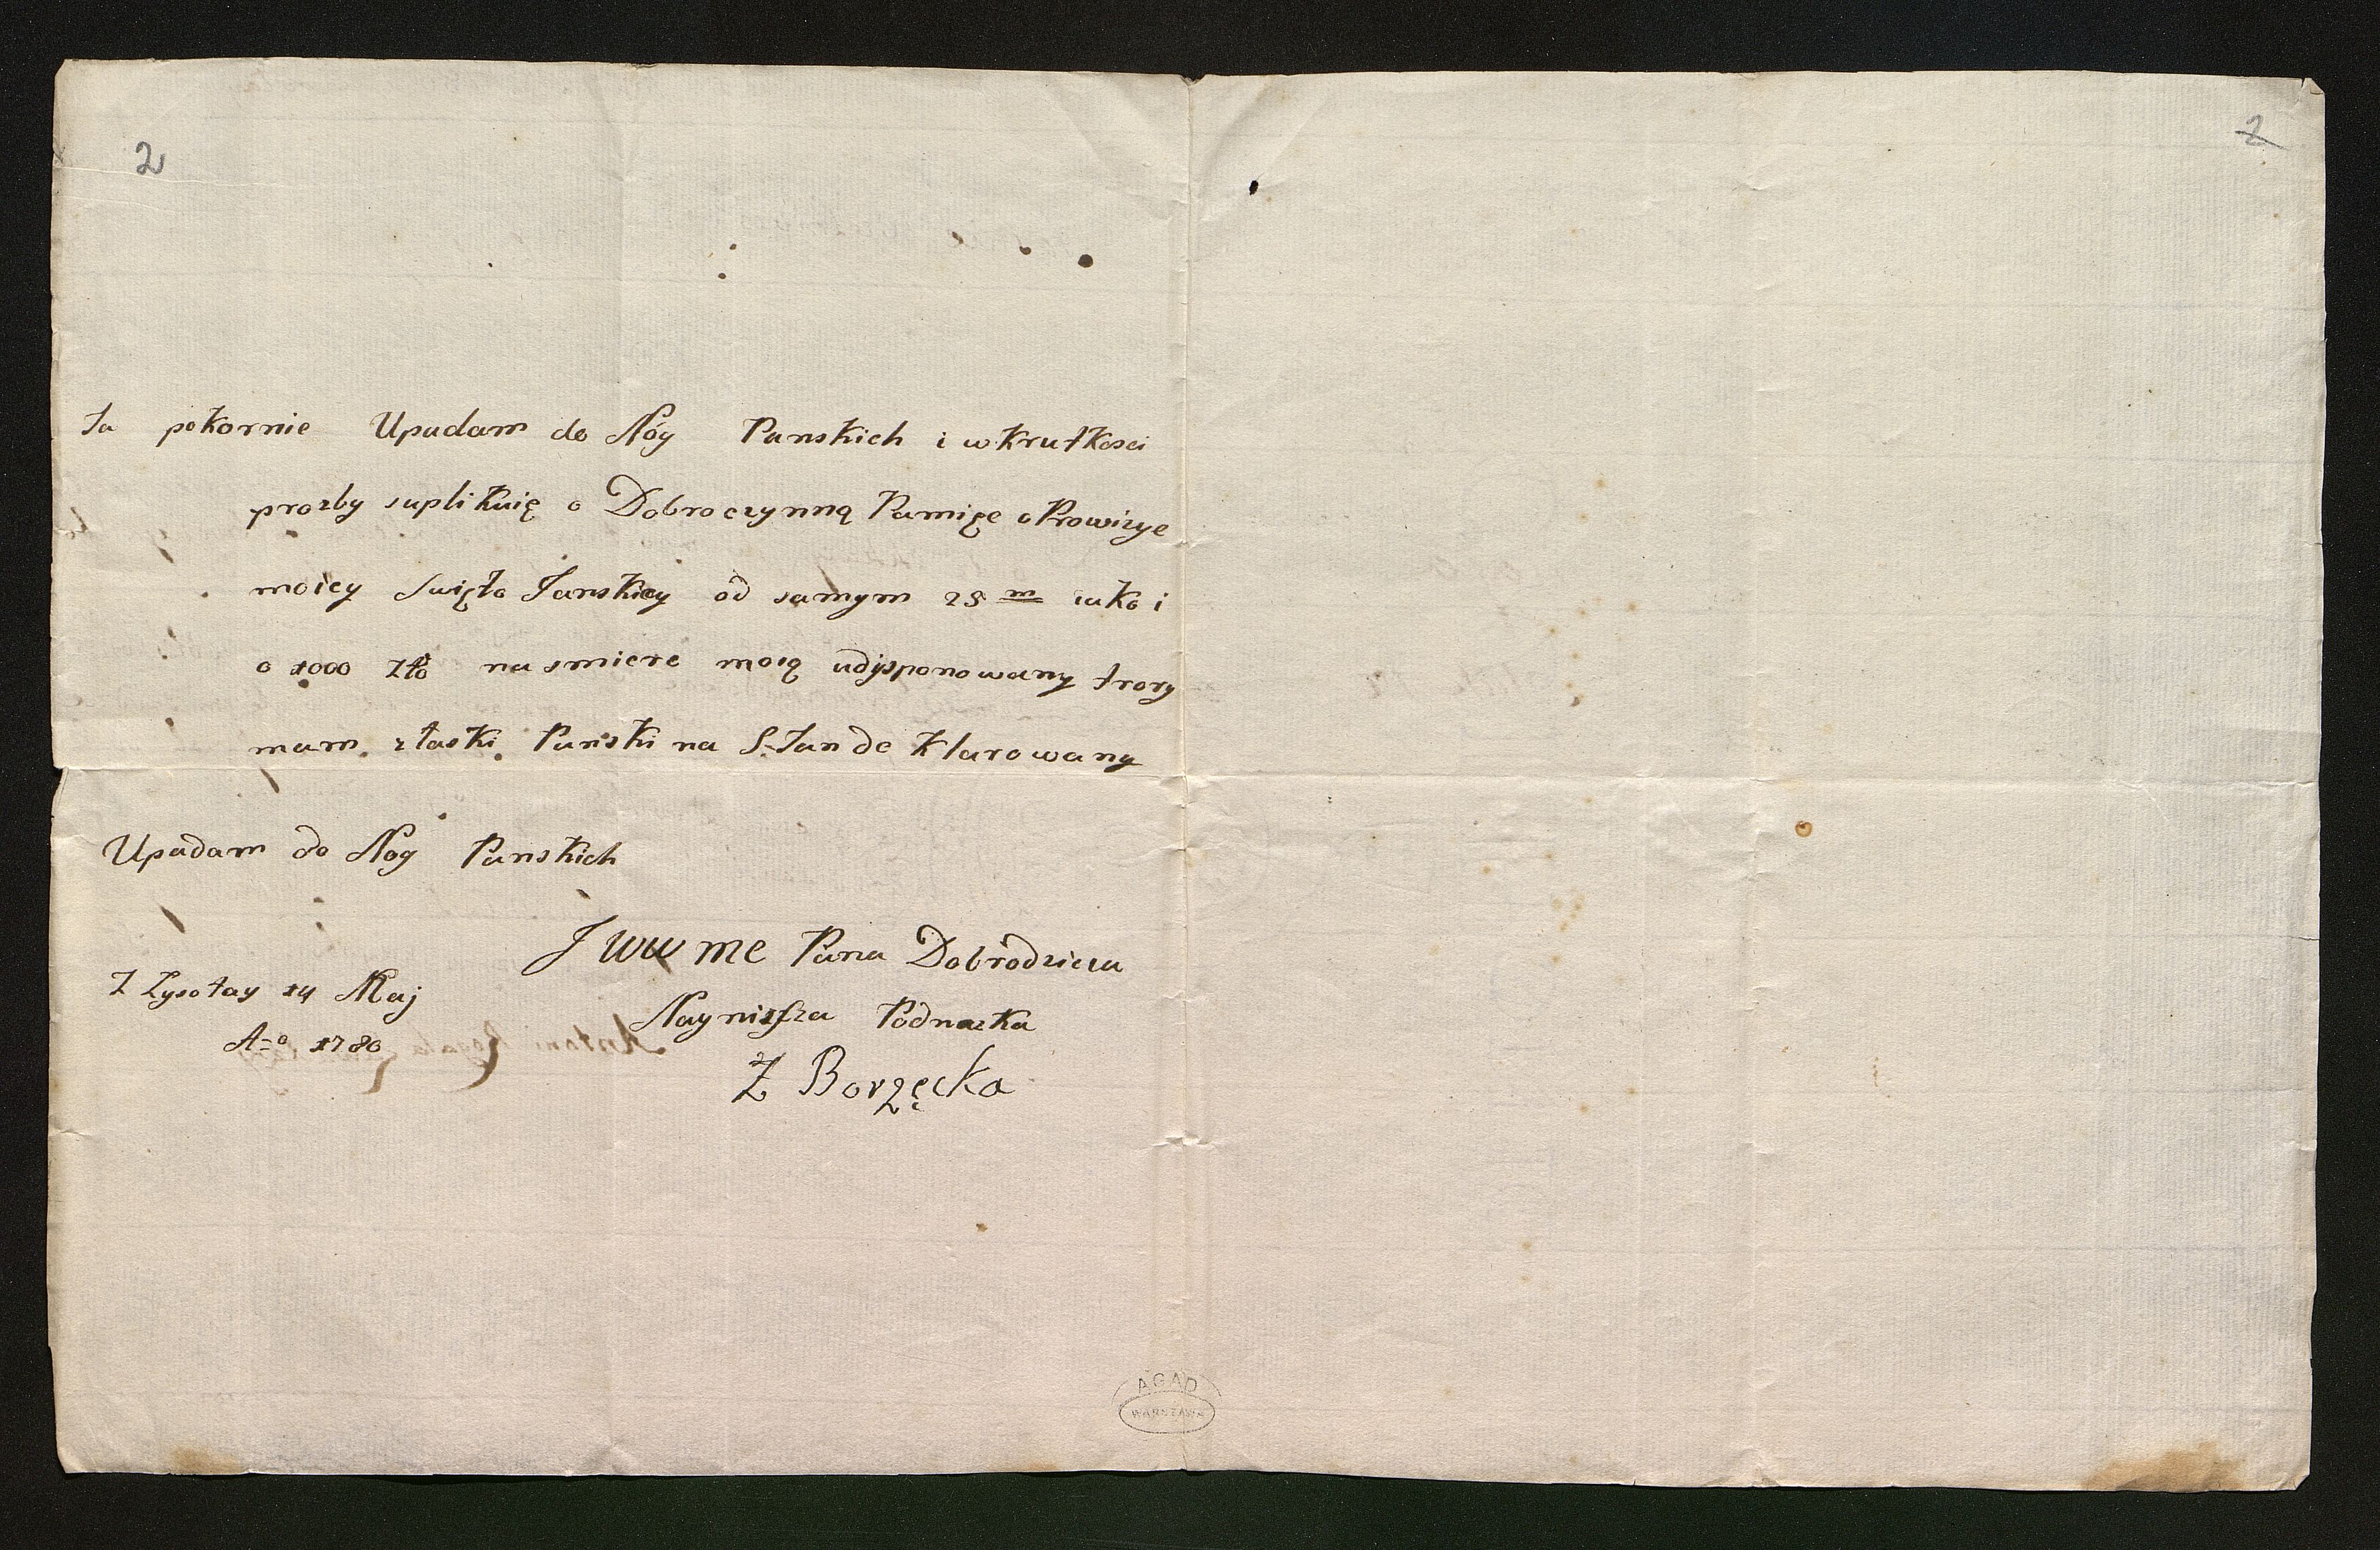 2
2
Ja pokornie Upadam do Nóg Panskich i w krutkosci
prozby suplikuię o Dobroczynną Pamięc o Prowizye
moiey Swięto Janskiey od samym 25 m iako i
o 1000 Zło na smierc moią udysponowany trory
mam z łaski Panski na S. Jan de klarowany
Upadam do Nog Panskich
J WW me Pana Dobrodzieia
Z Lysołay 14 Maj
Nayniższa Podnozka
A-o 1780
Z Borzęcka
AGAD
WARSZAWA